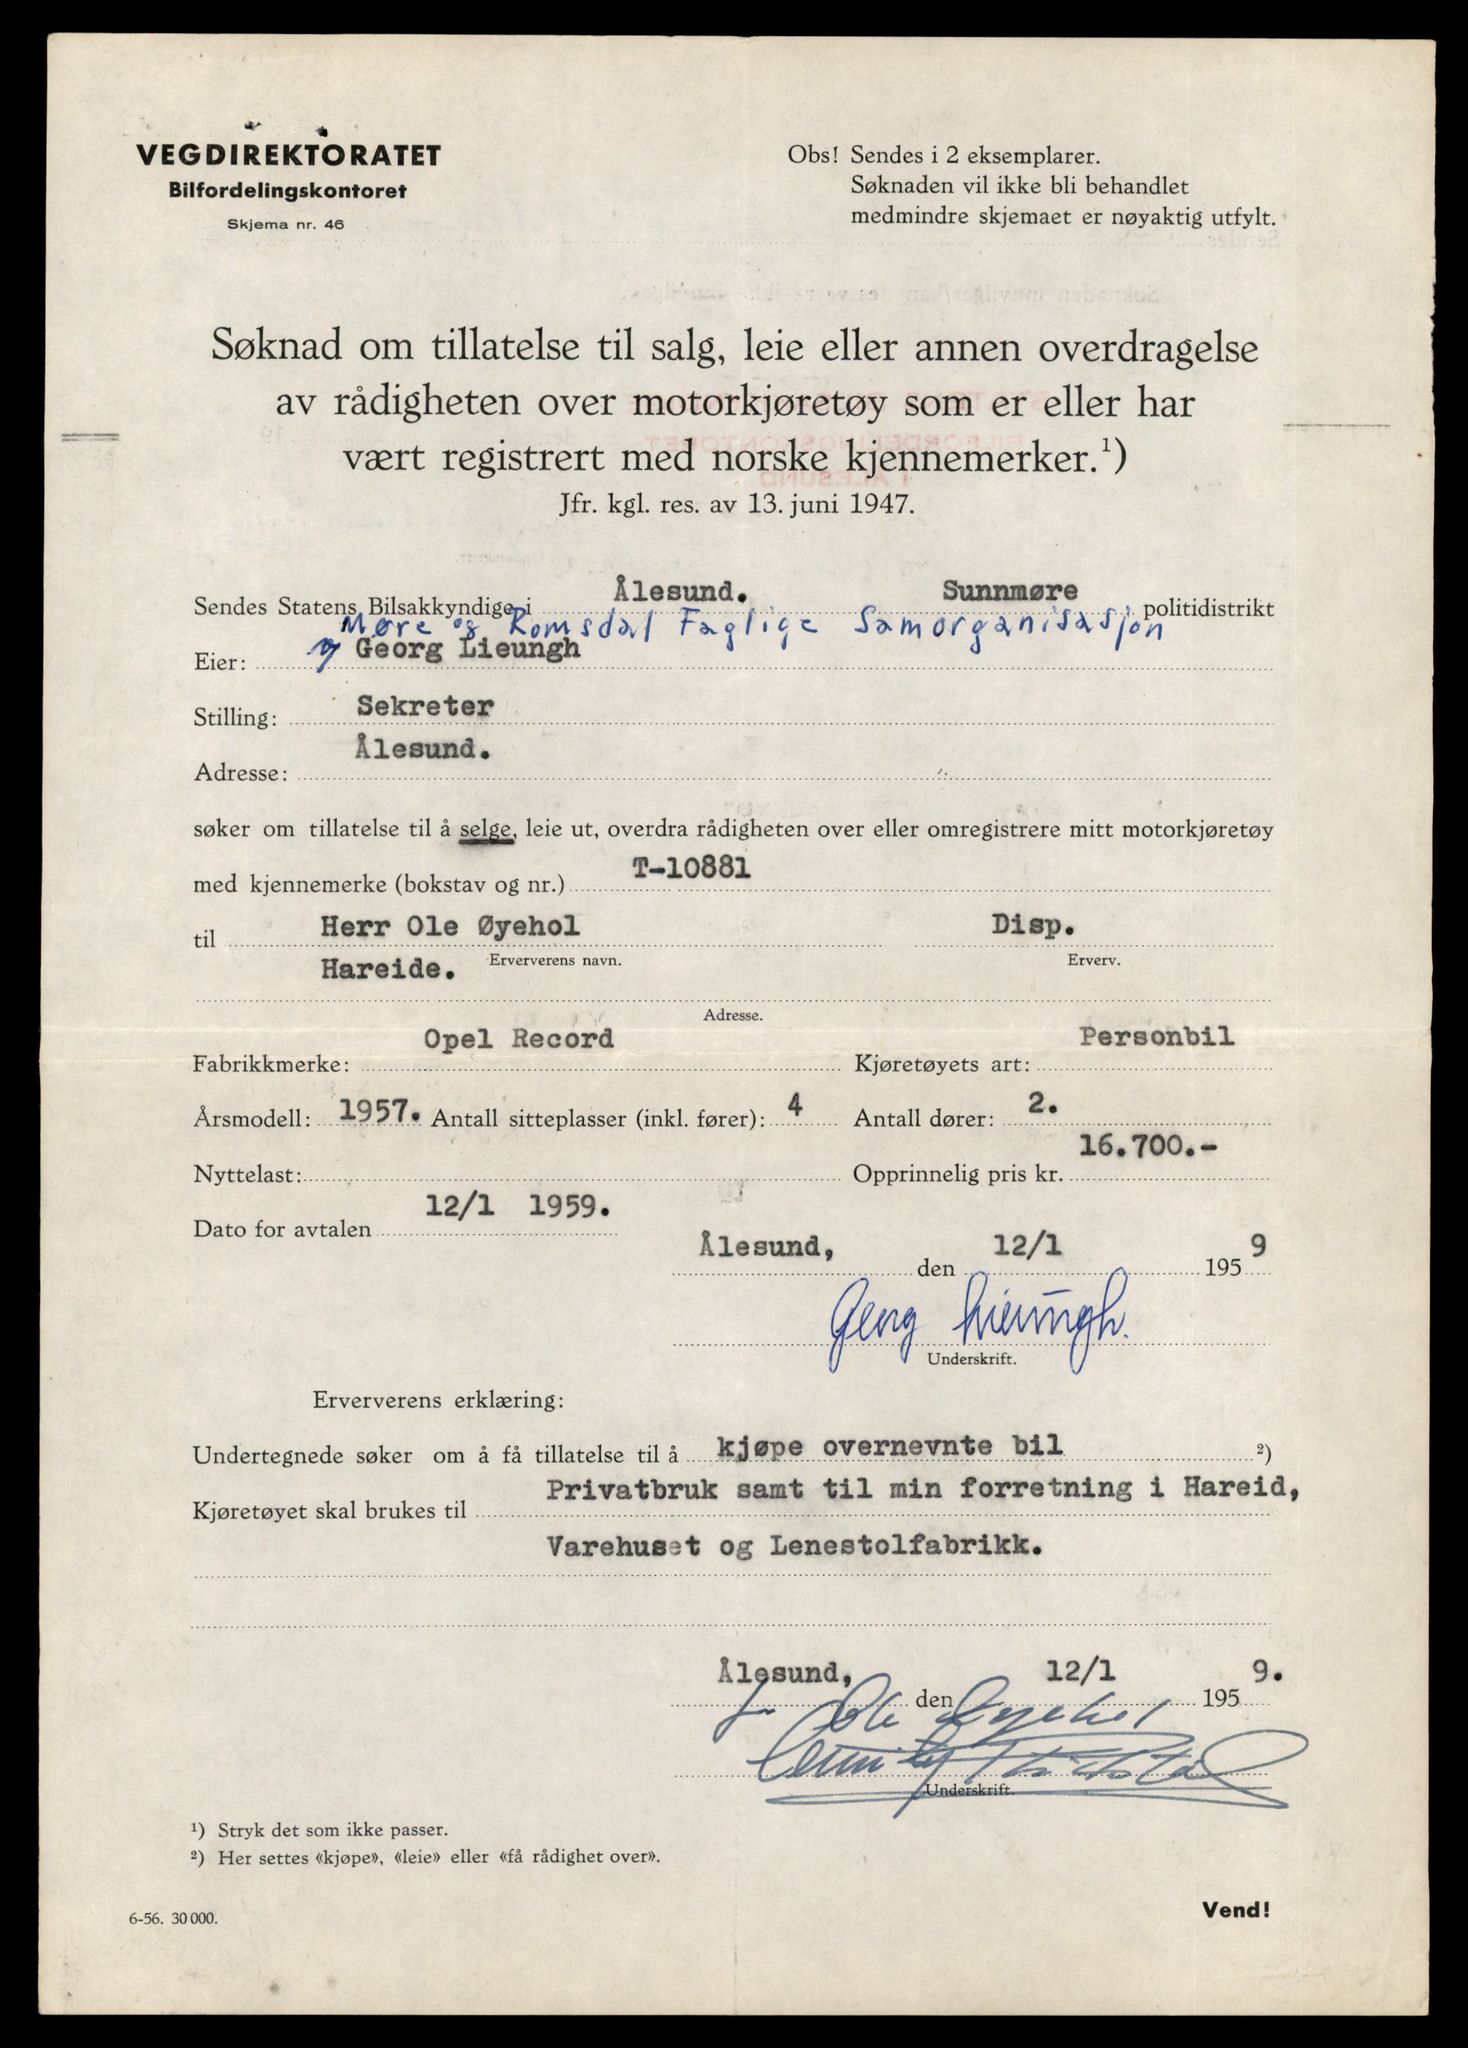 VEGDIREKTORATET
Bilfordelingskontoret
Skjema nr. 46
Obs! Sendes i 2 eksemplarer.
Søknaden vil ikke bli behandlet
medmindre skjemaet er nøyaktig utfylt.
Søknad om tillatelse til salg, leie eller annen overdragelse
av rådigheten over motorkjøretøy som er eller har
vært registrert med norske kjennemerker.¹)
Jfr. kgl. res. av 13. juni 1947.
Sendes Statens Bilsakkyndige i Ålesund. Sunnmøre politidistrikt
Møre og Romsdal Faglige Samorganisasjon
Eier: Georg Lieungh
Stilling: Sekreter
Adresse: Ålesund.
søker om tillatelse til å selge, leie ut, overdra rådigheten over eller omregistrere mitt motorkjøretøy
med kjennemerke (bokstav og nr.) T-10881
til Herr Ole Øyehol Disp.
Hareide. Erververens navn. Erverv.
Adresse.
Fabrikkmerke: Opel Record Kjøretøyets art: Personbil
Årsmodell: 1957. Antall sitteplasser (inkl. fører): 4 Antall dører: 2.
Nyttelast: Opprinnelig pris kr. 16.700.-
Dato for avtalen 12/1 1959.
Ålesund, den 12/1 1959
Georg Lieungh.
Underskrift.
Erververens erklæring:
Undertegnede søker om å få tillatelse til å kjøpe overnevnte bil ²)
Kjøretøyet skal brukes til Privatbruk samt til min forretning i Hareid,
Varehuset og Lenestolfabrikk.
Ålesund, den 12/1 1959.
Ole Øyehol
Underskrift.
¹) Stryk det som ikke passer.
²) Her settes «kjøpe», «leie» eller «få rådighet over».
6-56. 30 000.
Vend!